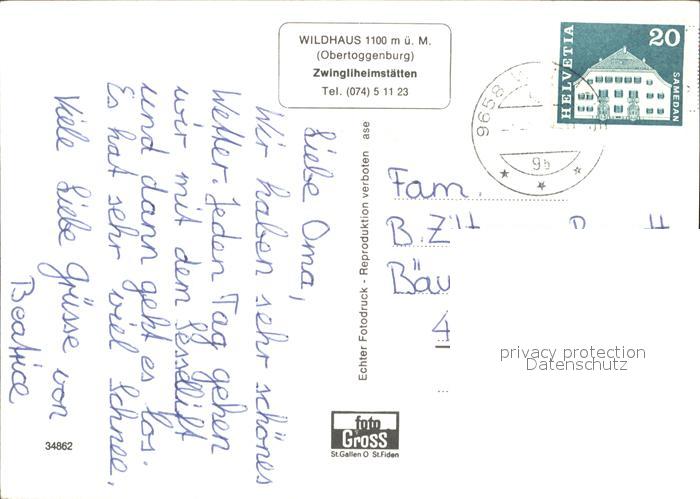 WILDHAUS 1100 m ü. M.
(Obertoggenburg)
Zwingliheimstätten
Tel. (074) 5 11 23
HELVETIA
20
SAMEDAN
9658
9b
Liebe Oma,
Wir haben sehr schönes
Wetter. Jeden Tag gehen
wir mit dem Sessellift
und dann geht es los.
Es hat sehr viel Schnee.
Viele liebe Grüsse von
Beatrice
Echter Fotodruck - Reproduktion verboten
ase
Fam.
B.
Bäu
4
privacy protection
Datenschutz
foto
Gross
St.Gallen O St.Fiden
34862